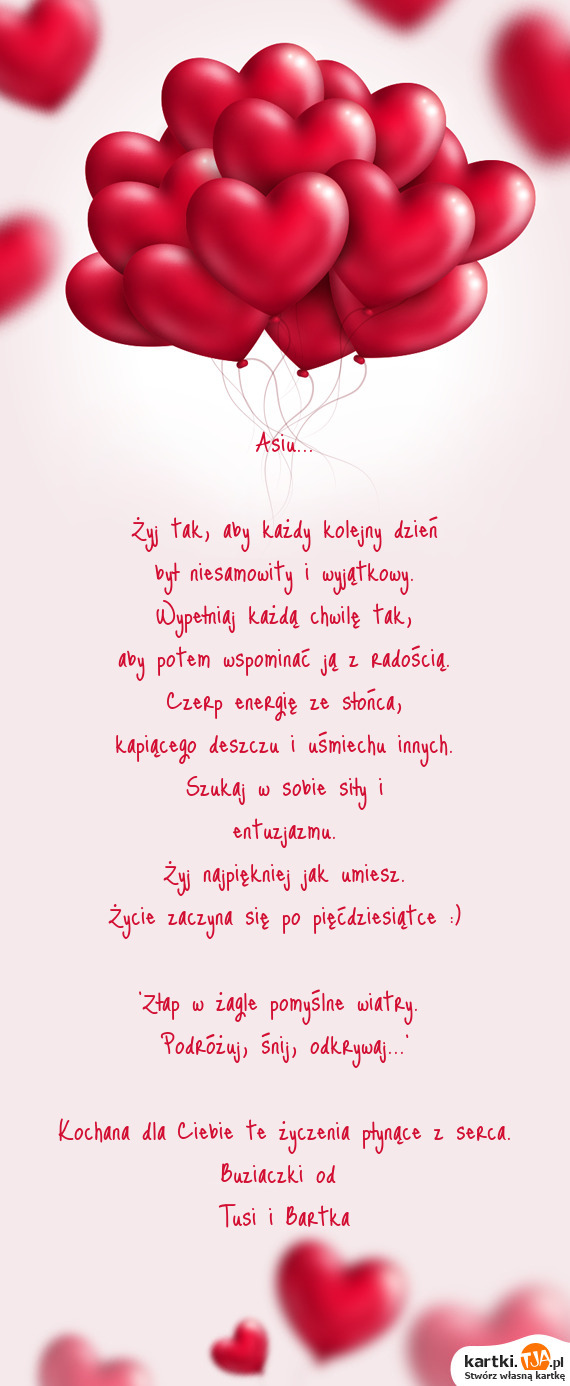 Asiu...
Żyj tak, aby każdy kolejny dzień
był niesamowity i wyjątkowy.
Wypełniaj każdą chwilę tak,
aby potem wspominać ją z radością.
Czerp energię ze słońca,
kapiącego deszczu i uśmiechu innych.
Szukaj w sobie siły i
entuzjazmu.
Żyj najpiękniej jak umiesz.
Życie zaczyna się po pięćdziesiątce :)
"Złap w żagle pomyślne wiatry.
Podróżuj, śnij, odkrywaj..."
Kochana dla Ciebie te życzenia płynące z serca.
Buziaczki od
Tusi i Bartka
kartki.TJA.pl
Stwórz własną kartkę